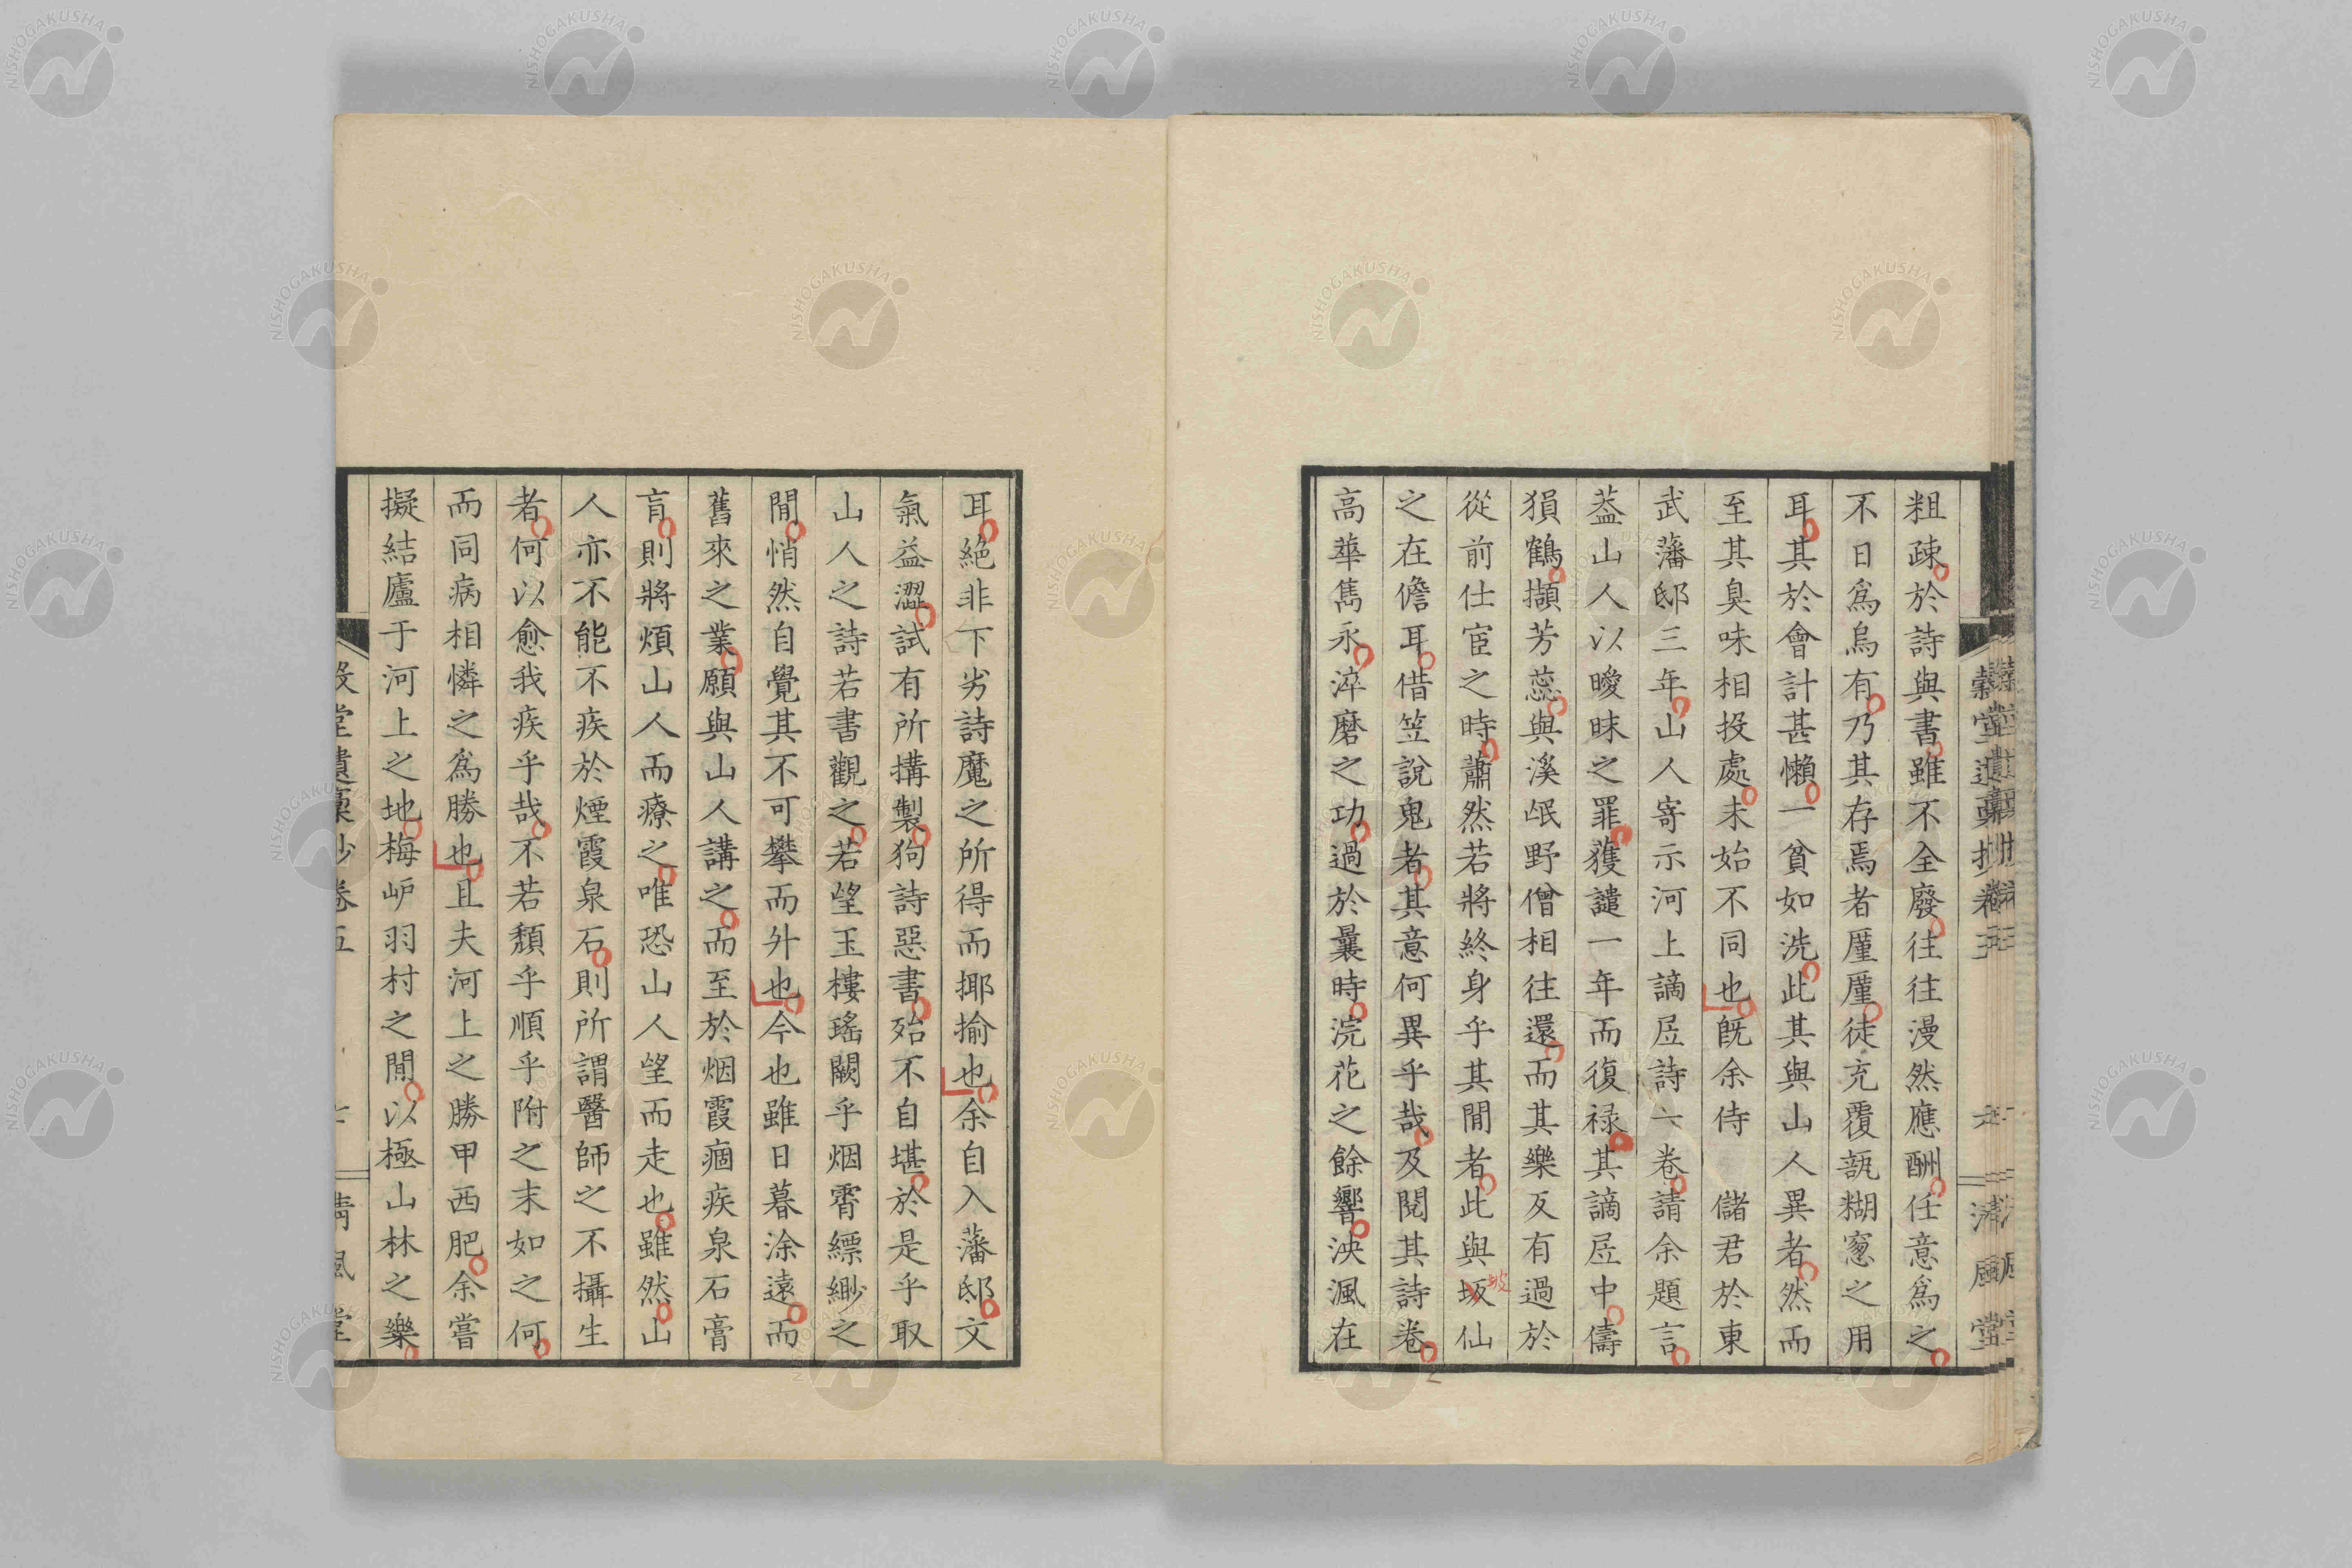 粗疎於詩與書雖不全廢往往漫然應酬任意爲之
不日爲烏有乃其存焉者厪厪徒充覆瓿糊窓之用
耳其於會計甚懶一貧如洗此其與山人異者然而
至其臭味相投處未始不同也既余侍 儲君於東
武藩邸三年山人寄示河上謫居詩六卷請余題言
葢山人以曖昧之罪獲譴一年而復禄其謫居中儔
猿鶴擷芳蕊與溪氓野僧相往還而其樂反有過於
從前仕宦之時蕭然若將終身乎其間者此與坂仙
坡
之在儋耳借笠說鬼者其意何異乎哉及閱其詩卷
高華雋永淬磨之功過於曩時浣花之餘響泱渢在
耳絕非下劣詩魔之所得而揶揄也余自入藩邸文
氣益澀試有所搆製狗詩惡書殆不自堪於是乎取
山人之詩若書觀之若望玉樓瑤闕乎烟霄縹緲之
間悄然自覺其不可攀而外也今也雖日暮涂遠而
舊來之業願與山人講之而至於烟霞痼疾泉石膏
肓則將煩山人而療之唯恐山人望而走也雖然山
人亦不能不疾於煙霞泉石則所謂醫師之不攝生
者何以愈我疾乎哉不若頹乎順乎附之末如之何
而同病相憐之爲勝也且夫河上之勝甲西肥余嘗
擬結廬于河上之地梅屳羽村之間以極山林之樂
穀堂遺稾抄卷五 七 清風堂
NISHOGAKUSHA